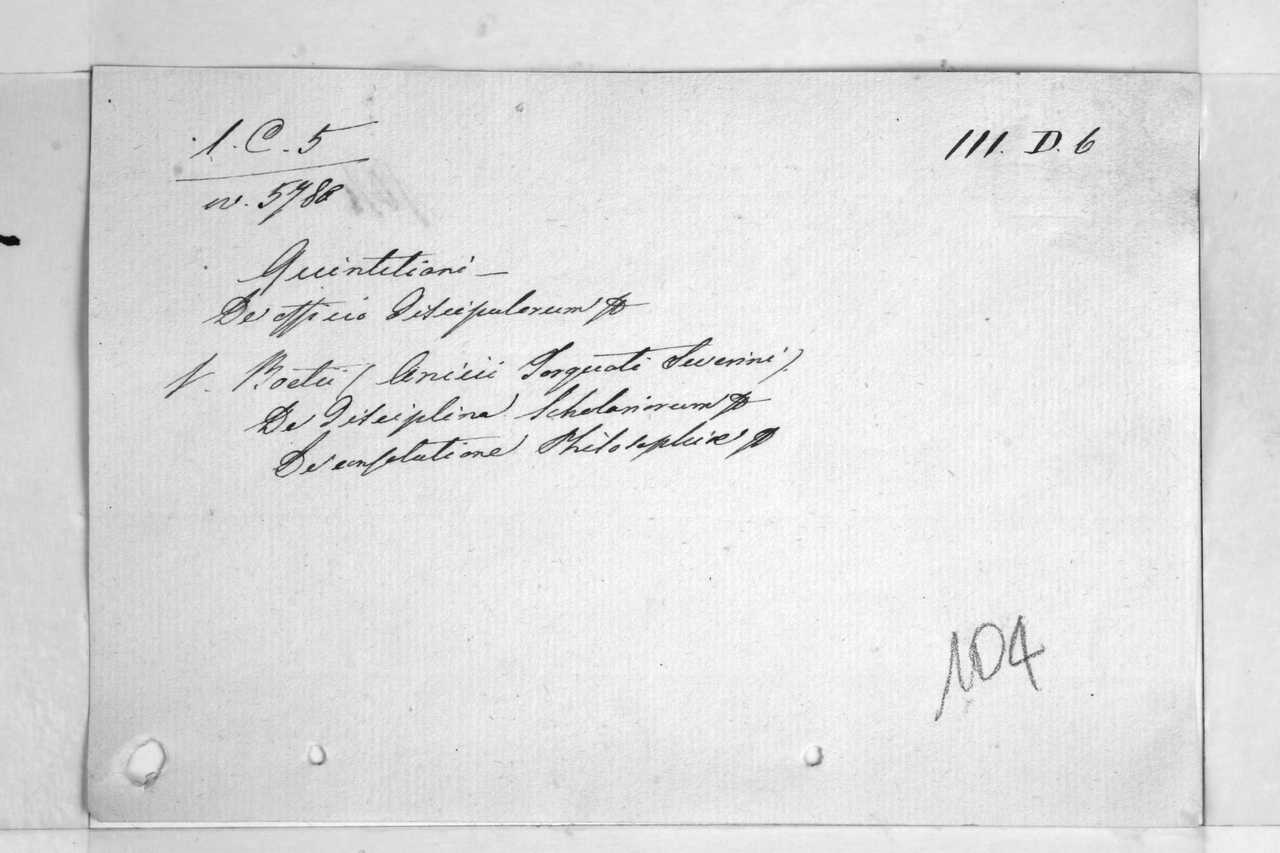 1. C. 5
III. D. 6
n. 5788
Quintiliani —
De officio Discipulorum
V. Boetii (Anicii Torquati Severini)
De Disciplina Scholariorum
De consolatione Philosophiæ
104